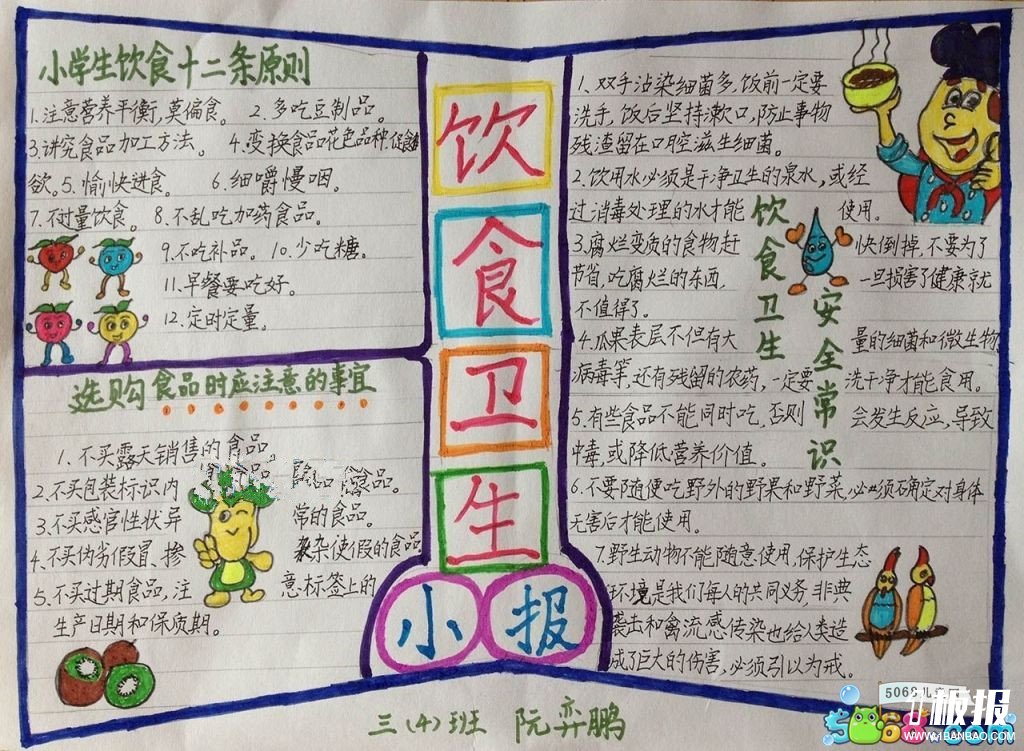 小学生饮食十二条原则
1.注意营养平衡,莫偏食。 2.多吃豆制品。
3.讲究食品加工方法。 4.变换食品花色品种,促食
欲。5.愉快进食。 6.细嚼慢咽。
7.不过量饮食。 8.不乱吃加药食品。
9.不吃补品。 10.少吃糖。
11.早餐要吃好。
12.定时定量。
选购食品时应注意的事宜
1.不买露天销售的食品
2.不买包装标识内 食品。
3.不买感官性状异 常的食品。
4.不买伪劣假冒、掺 杂使假的食品
5.不买过期食品,注 意标签上的
生产日期和保质期。
饮
食
卫
生
小报
饮食卫生
安全常识
1.双手沾染细菌多,饭前一定要
洗手,饭后坚持漱口,防止事物
残渣留在口腔滋生细菌。
2.饮用水必须是干净卫生的泉水,或经
过消毒处理的水才能 使用。
3.腐烂变质的食物赶 快倒掉,不要为了
节省,吃腐烂的东西, 一旦损害了健康就
不值得了。
4.瓜果表层不但有大 量的细菌和微生物
病毒等,还有残留的农药,一定要 洗干净才能食用。
5.有些食品不能同时吃,否则 会发生反应,导致
中毒,或降低营养价值。
6.不要随便吃野外的野果和野菜,必须确定对身体
无害后才能使用。
7.野生动物不能随意使用,保护生态
环境是我们每人的共同义务,非典
袭击和禽流感传染也给人类造
成了巨大的伤害,必须引以为戒。
三(4)班 阮弈鹏
5068儿
板报
5068.com
WWW.1BANBAO.COM